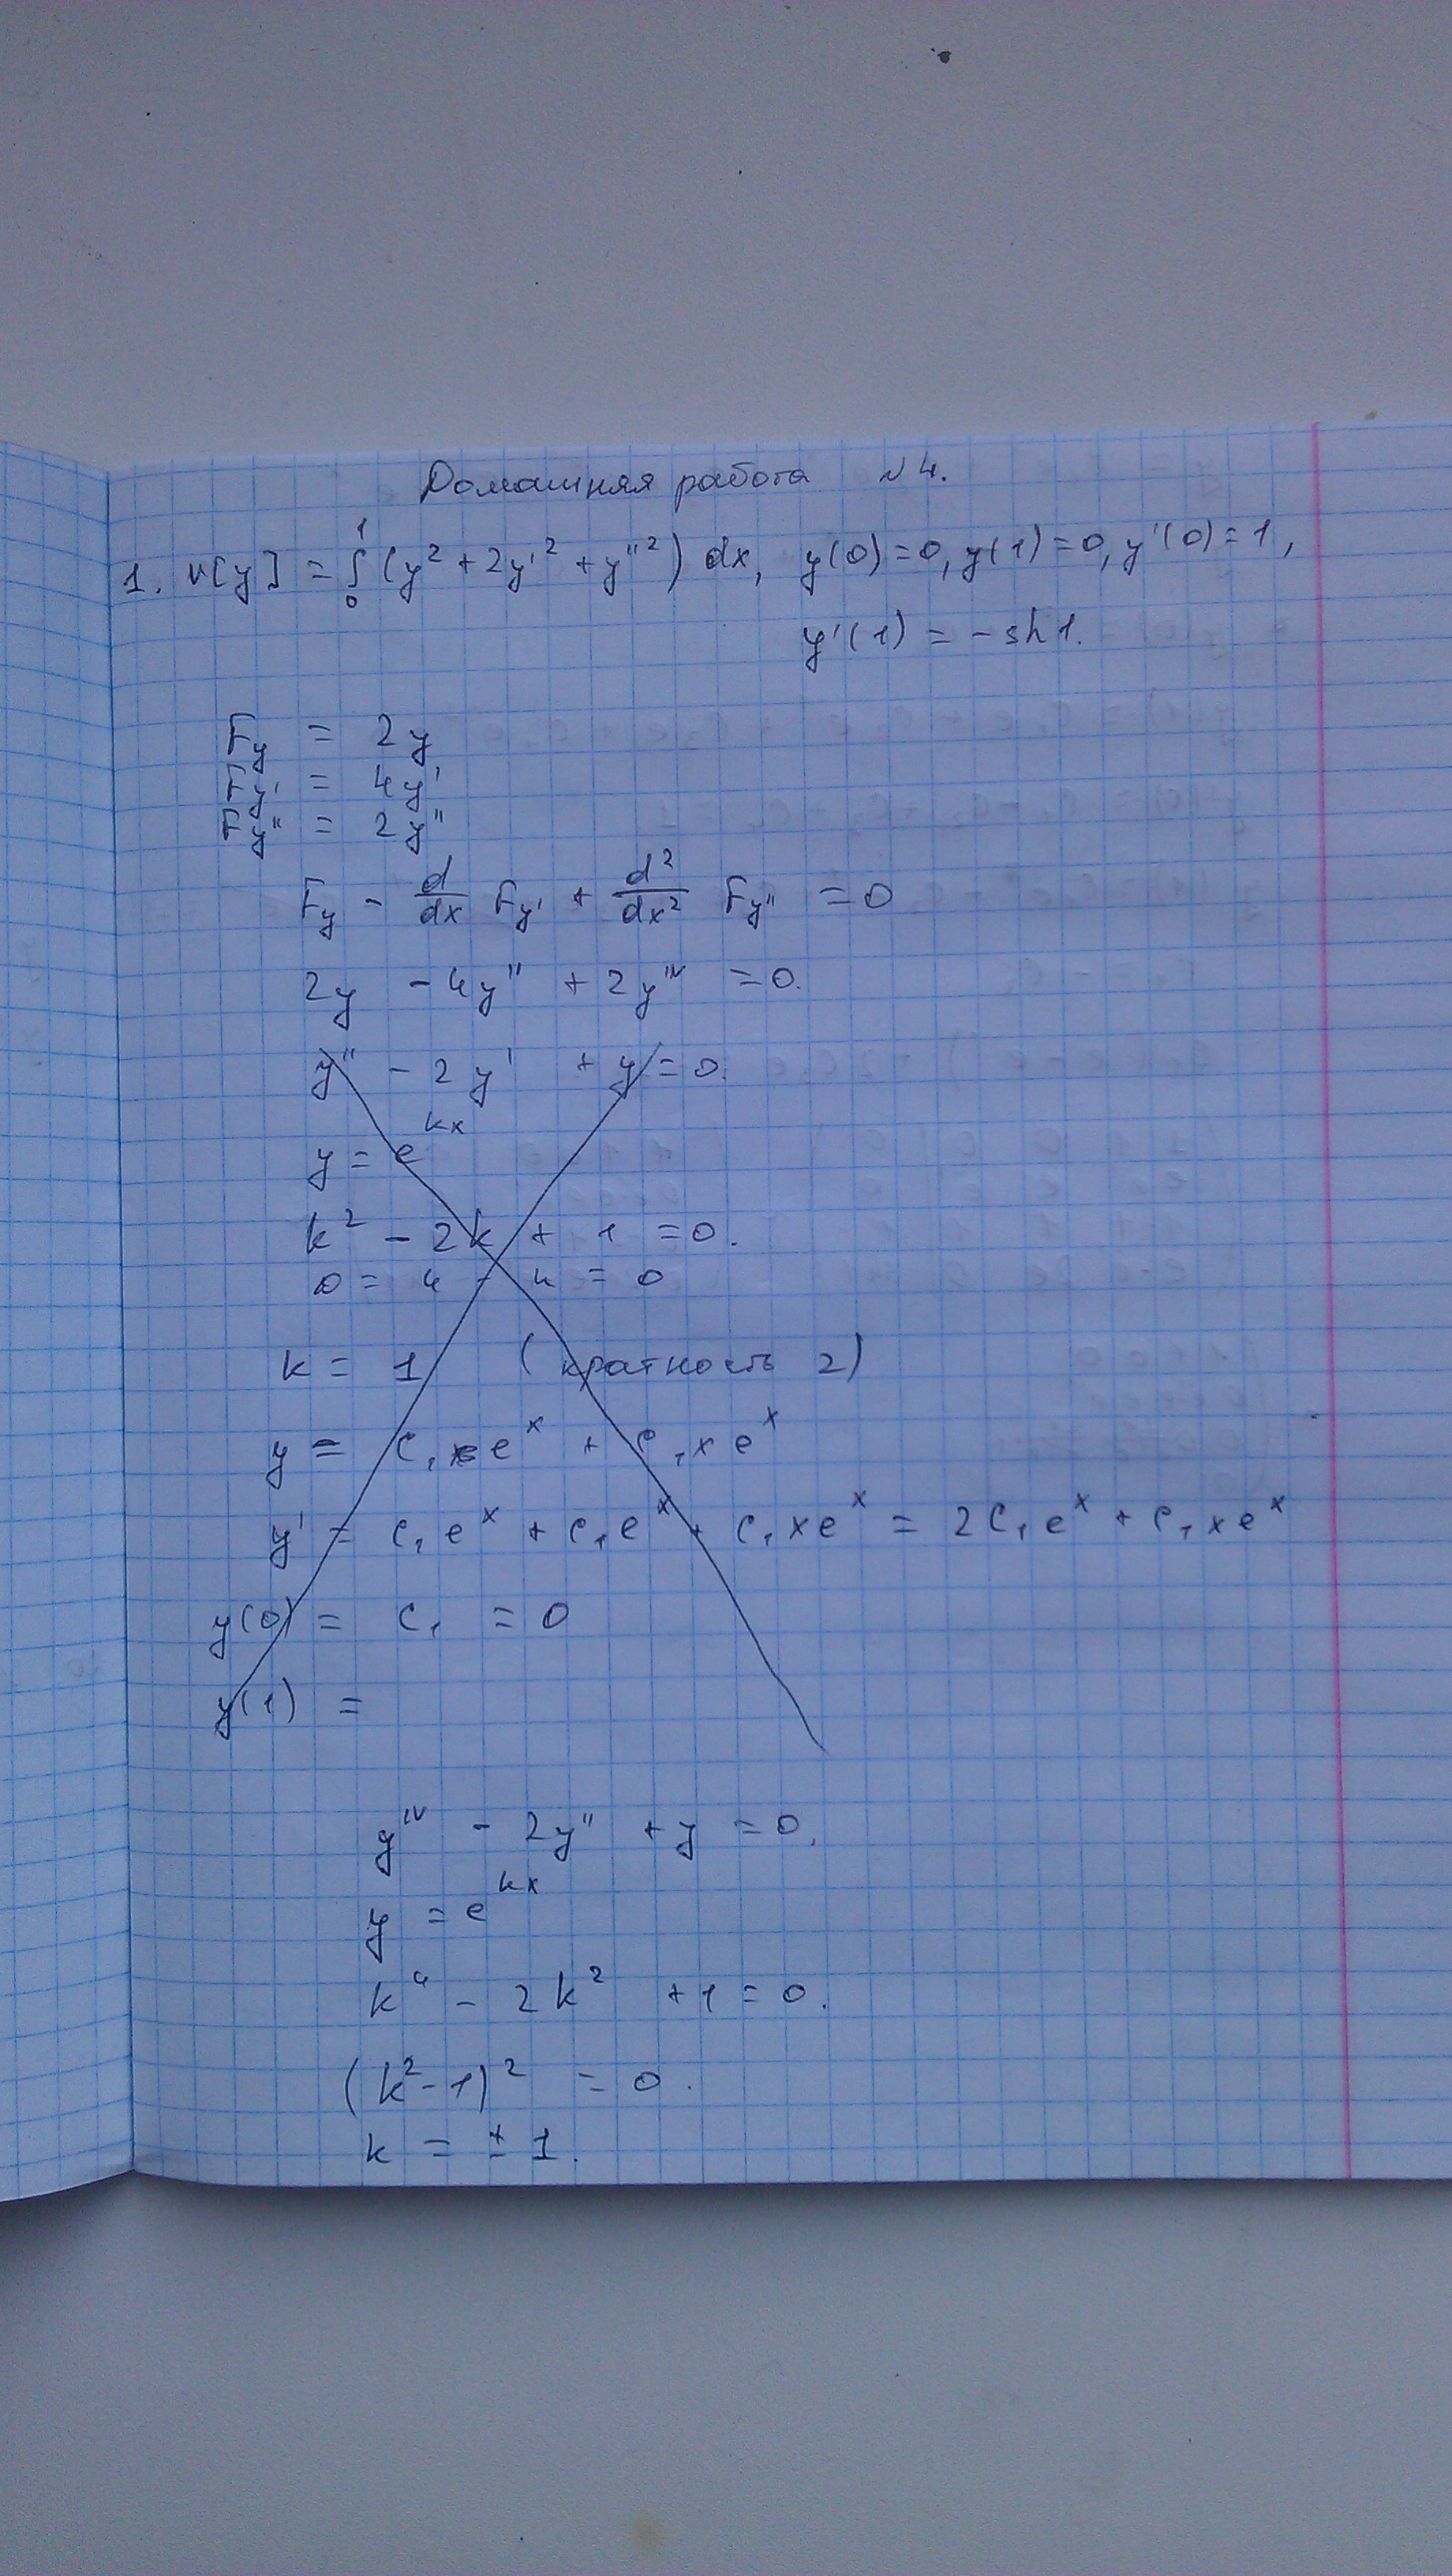 Домашняя работа №4.
1. v[y] = ∫₀¹ (y² + 2y'² + y''²) dx, y(0) = 0, y(1) = 0, y'(0) = 1,
y'(1) = - sh 1.
F_y = 2y
F_y' = 4y'
F_y'' = 2y''
F_y - d/dx F_y' + d²/dx² F_y'' = 0
2y - 4y'' + 2y^IV = 0.
y'' - 2y' + y = 0.
y = e^kx
k² - 2k + 1 = 0.
D = 4 - 4 = 0
k = 1 (кратность 2)
y = C₁ e^x + C₁ x e^x
y' = C₁ e^x + C₁ e^x + C₁ x e^x = 2C₁ e^x + C₁ x e^x
y(0) = C₁ = 0
y(1) =
y^IV - 2y'' + y = 0.
y = e^kx
k⁴ - 2k² + 1 = 0.
(k² - 1)² = 0.
k = ± 1.